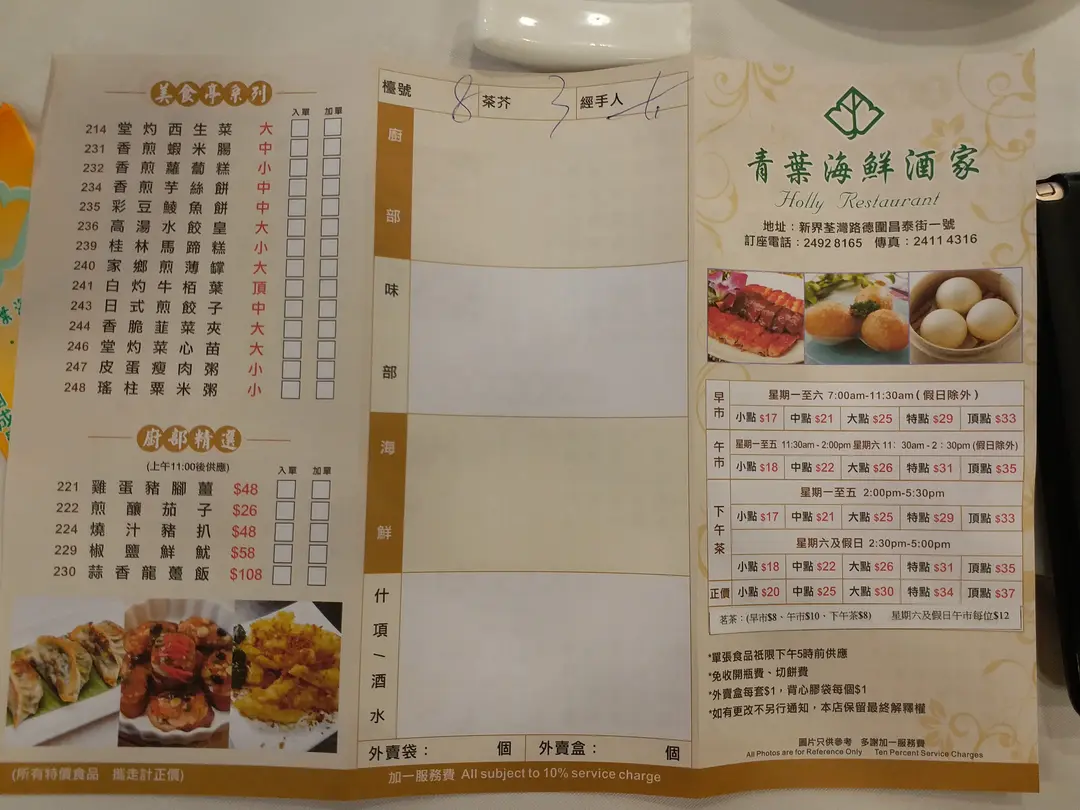 美食亭系列
入單 加單
214 堂灼西生菜 大
231 香煎蝦米腸 中
232 香煎蘿蔔糕 小
234 香煎芋絲餅 中
235 彩豆鯪魚餅 中
236 高湯水餃皇 大
239 桂林馬蹄糕 小
240 家鄉煎薄罉 大
241 白灼牛栢葉 頂
243 日式煎餃子 中
244 香脆韮菜夾 大
246 堂灼菜心苗 大
247 皮蛋瘦肉粥 小
248 瑤柱粟米粥 小
廚部精選
(上午11:00後供應)
入單 加單
221 雞蛋豬腳薑 $48
222 煎釀茄子 $26
224 燒汁豬扒 $48
229 椒鹽鮮魷 $58
230 蒜香龍躉飯 $108
(所有特價食品 攜走計正價)
檯號 8 茶芥 3 經手人
廚部
味部
海鮮
什項/酒水
外賣袋： 個 外賣盒： 個
加一服務費 All subject to 10% service charge
青葉海鮮酒家
Holly Restaurant
地址：新界荃灣路德圍昌泰街一號
訂座電話：2492 8165 傳真：2411 4316
早市
星期一至六 7:00am-11:30am ( 假日除外 )
小點 $17 中點 $21 大點 $25 特點 $29 頂點 $33
午市
星期一至五 11:30am - 2:00pm 星期六 11：30am - 2：30pm (假日除外)
小點 $18 中點 $22 大點 $26 特點 $31 頂點 $35
下午茶
星期一至五 2:00pm-5:30pm
小點 $17 中點 $21 大點 $25 特點 $29 頂點 $33
星期六及假日 2:30pm-5:00pm
小點 $18 中點 $22 大點 $26 特點 $31 頂點 $35
正價 小點 $20 中點 $25 大點 $30 特點 $34 頂點 $37
茗茶：(早市$8、午市$10、下午茶$8) 星期六及假日午市每位$12
*單張食品祇限下午5時前供應
*免收開瓶費、切餅費
*外賣盒每套$1，背心膠袋每個$1
*如有更改不另行通知，本店保留最終解釋權
圖片只供參考 多謝加一服務費
All Photos are for Reference Only Ten Percent Service Charges